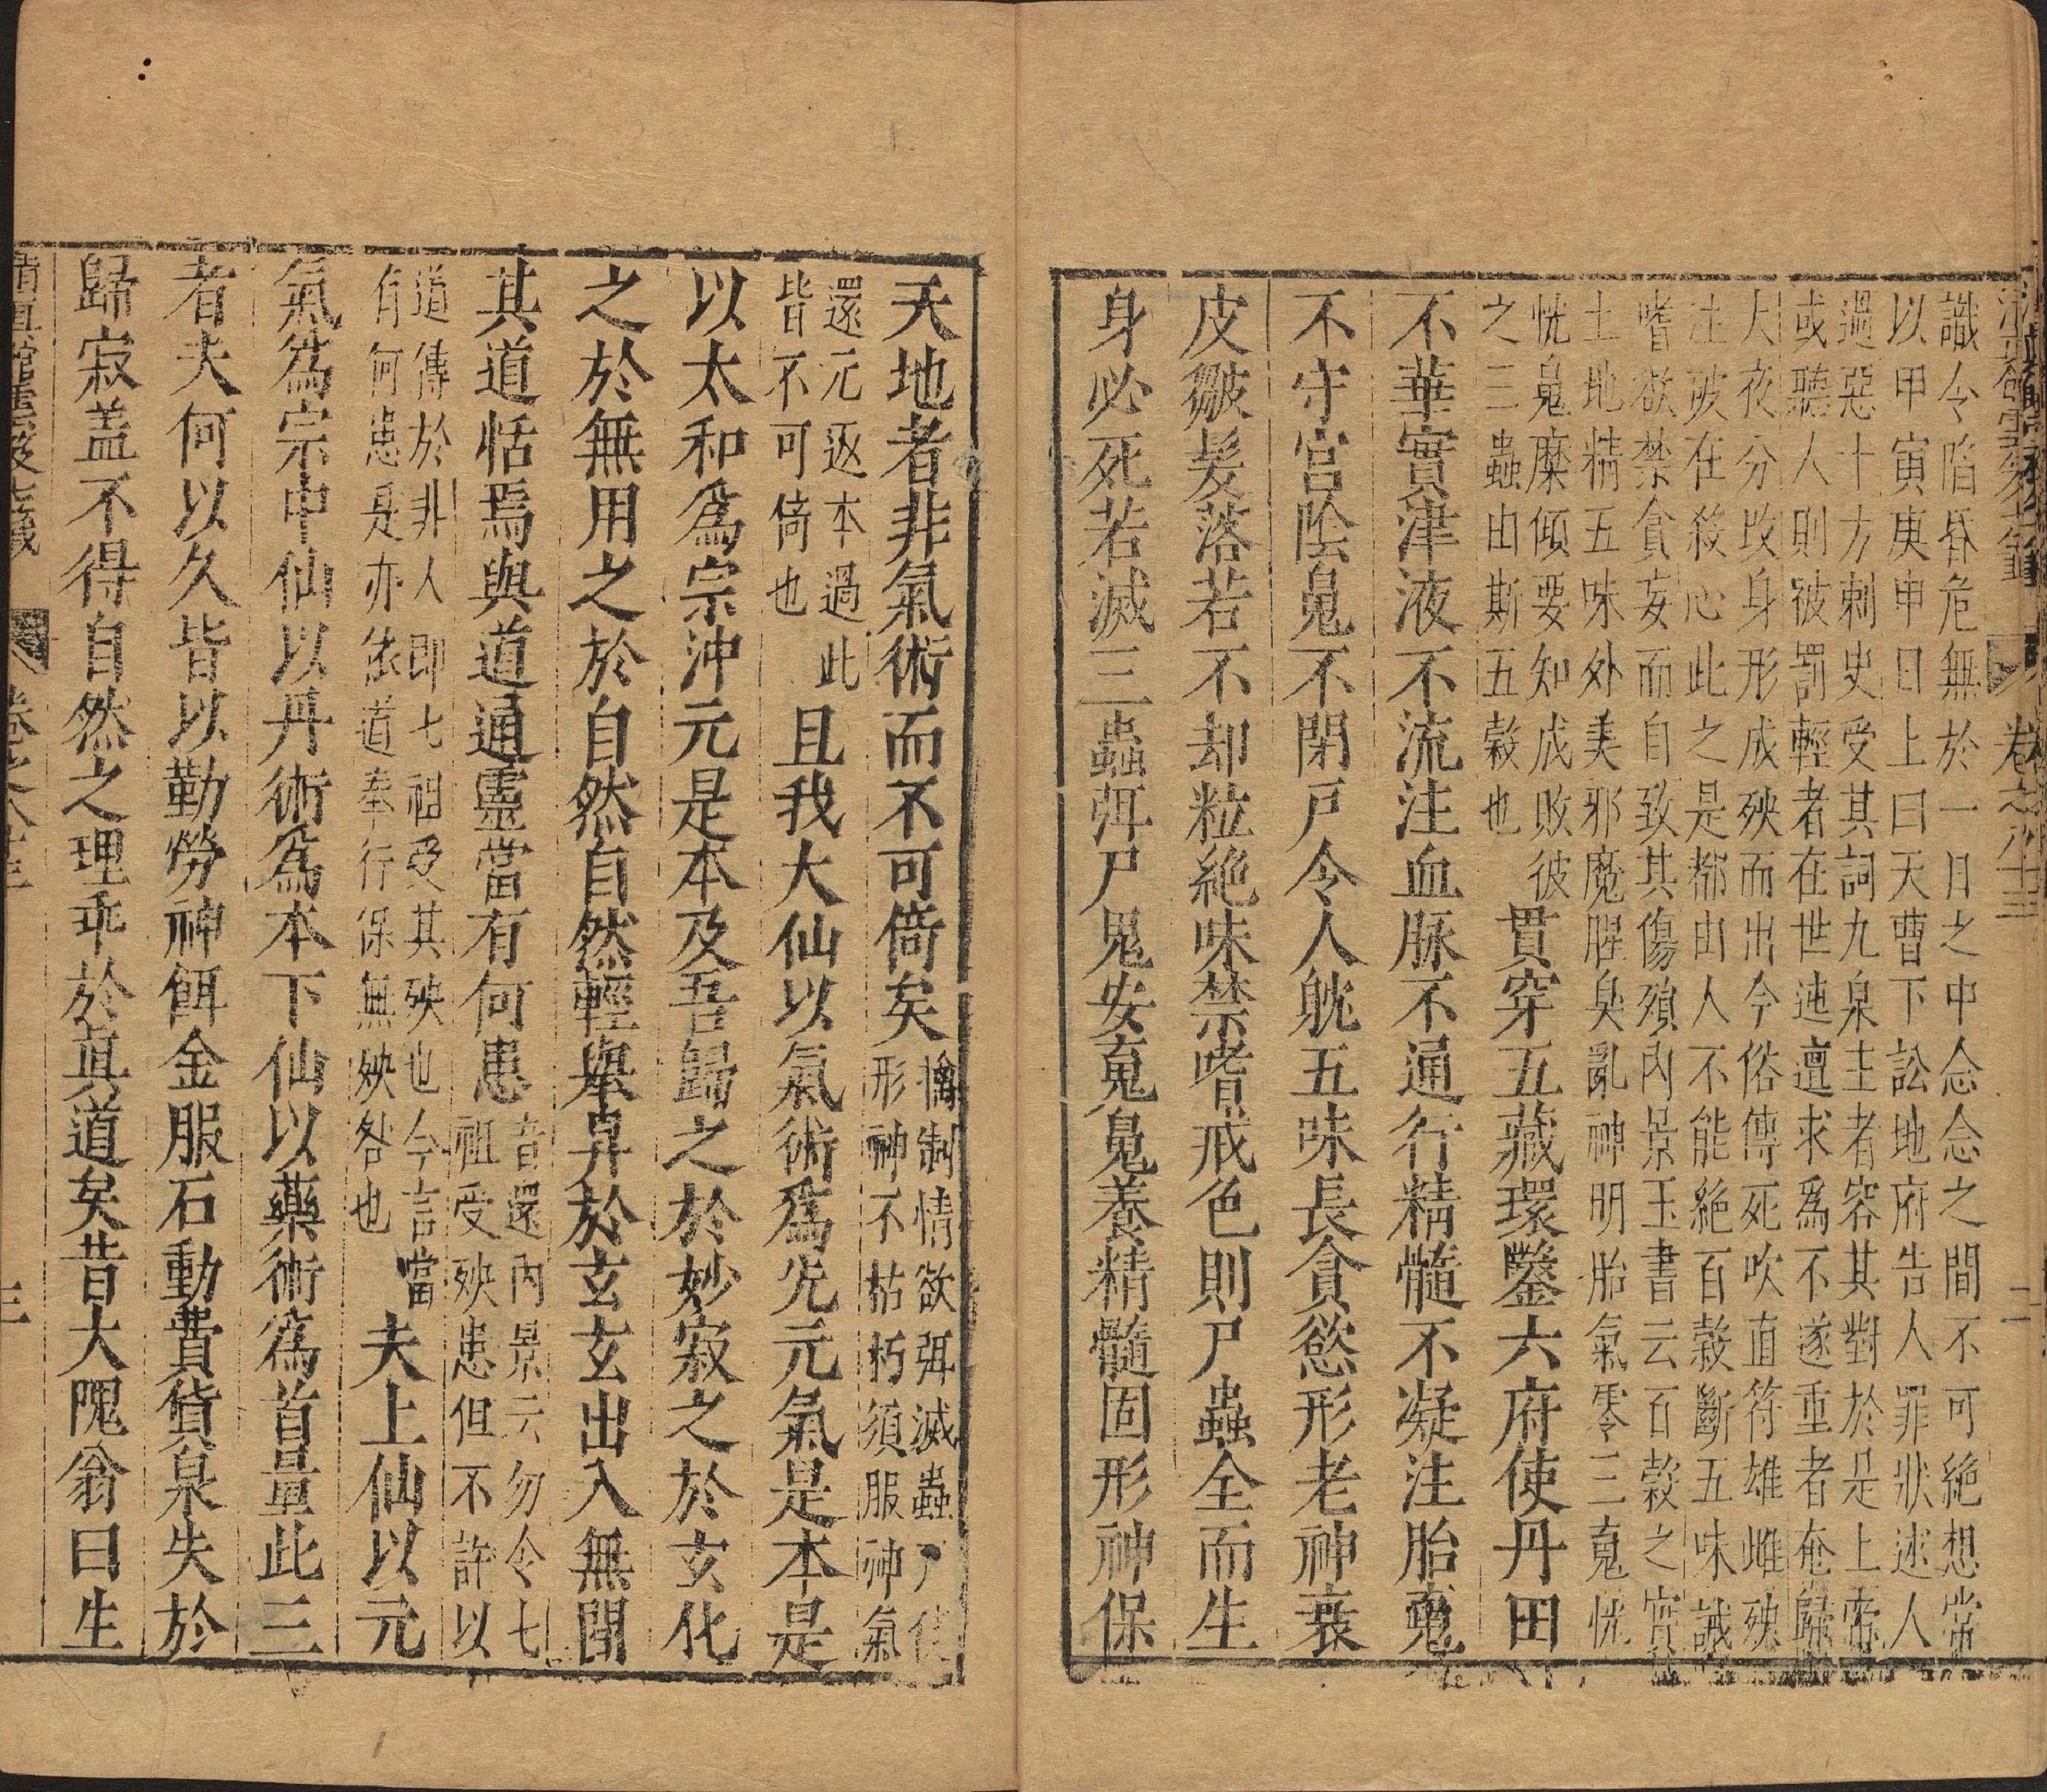 卷之八十三 二
識令陷昏危無於一日之中念念之間不可絶想常
以甲寅庚申日上曰天曹下訟地府告人罪狀述人
過惡十方刺史受其詞九泉主者容其對於是上帝
或聽人則被罰輕者在世迍邅求爲不遂重者奄歸
大夜分改身形成殃而出今俗傳死吹直符雄雌殃
注破在殺心此之是都由人不能絶百穀斷五味誡
嗜欲禁貪妄而自致其傷殞內景玉書云百穀之實
土地精五味外美邪魔腥臭亂神明胎氣零三䰟恍
恍䰟糜傾要知成敗彼
之三蟲由斯五穀也
貫穿五藏環鑿六府使丹田
不華實津液不流注血脉不通行精髓不凝注胎䰟
不守宫陰鬼不閉戸令人躭五味長貪慾形老神衰
皮皺髮落若不却粒絶味禁嗜戒色則尸蟲全而生
身必死若滅三蟲弭尸鬼安䰟魄養精髓固形神保
天地者非氣術而不可倚矣
擒制情欲弭滅蟲尸使
形神不枯朽須服神氣
還元返本過此
皆不可倚也
且我大仙以氣術爲先元氣是本是
以太和爲宗沖元是本及吾歸之於妙寂之於玄化
之於無用之於自然自然輕舉昇於玄玄出入無間
其道恬焉與道通靈當有何患
音還內景云勿令七
祖受殃患但不許以
道傳於非人即七祖受其殃也今言當
有何患是亦依道奉行保無殃咎也
夫上仙以元
氣爲宗中仙以丹術爲本下仙以藥術爲首量此三
者夫何以久皆以勤勞神餌金服石動費貨泉失於
歸寂盖不得自然之理乖於真道矣昔大隗翁曰生
清真館雲笈七籤 卷之八十三 三